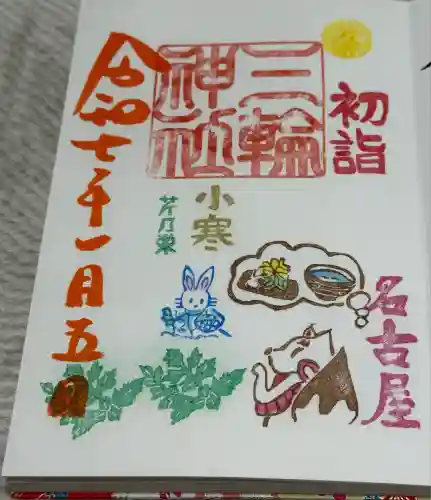 初詣
名古屋
三輪
神社
小寒
芹乃栄
令和七年一月五日